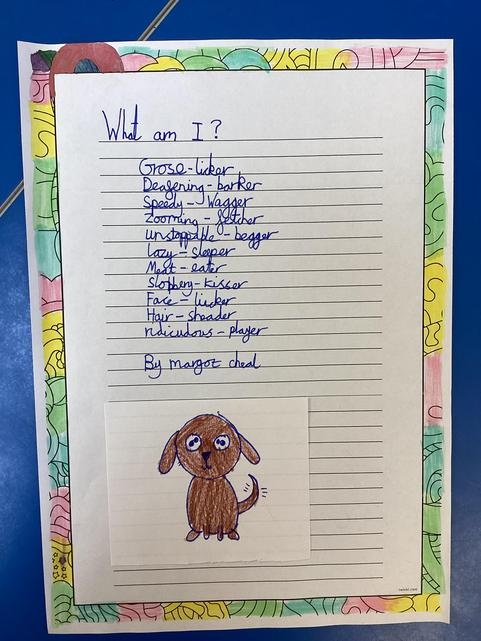 What am I?
Grose-licker
Deafening-barker
Speedy-Wagger
Zooming-fetcher
unstoppable-begger
Lazy-sleeper
Meat-eater
Slophery-kisser
Face-licker
Hair-sheader
ridiculous-player
By margot cheal
twinkl.com